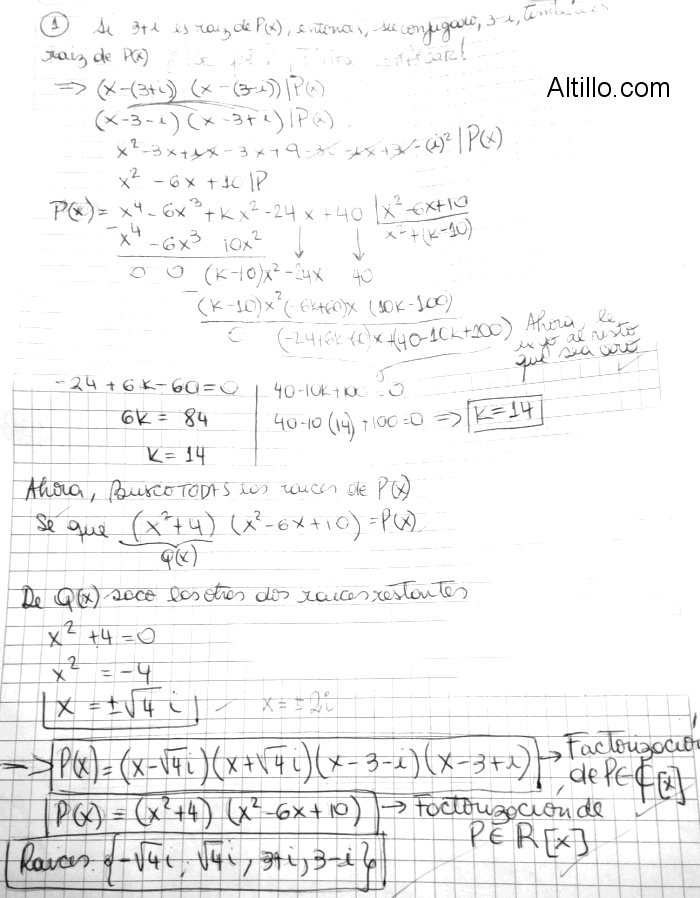 ① Si 3+i es raiz de P(x), entonces, su conjugado, 3-i, también es
raiz de P(x)
Altillo.com
⇒ (x-(3+i)) (x-(3-i)) | P(x)
(x-3-i) (x-3+i) | P(x)
x² -3x+ix -3x+9 -3i -ix +3i -(i)² | P(x)
x² -6x +10 | P
P(x)= x⁴ -6x³ +kx² -24x +40 | x² -6x+10
- x⁴ -6x³ 10x² x²+(k-10)
0 0 (k-10)x² -24x 40
- (k-10)x² (-6k+60)x (10k-100)
0 (-24+6k-60)x+(40-10k+100) Ahora, le
exijo al resto
que sea cero
-24+6k-60=0 | 40-10k+100=0
6k = 84 | 40-10(14)+100=0 ⇒ k=14
k=14
Ahora, Busco TODAS las raices de P(x)
Sé que (x²+4) (x²-6x+10)=P(x)
Q(x)
De Q(x) saco las otras dos raices restantes
x² +4=0
x² = -4
x = ±√4 i x=±2i
⇒ P(x)=(x-√4i)(x+√4i)(x-3-i)(x-3+i) → Factorización
de P∈ ℂ[x]
P(x)=(x²+4) (x²-6x+10) → Factorización de
P∈ R[x]
Raices {-√4i, √4i, 3+i, 3-i}